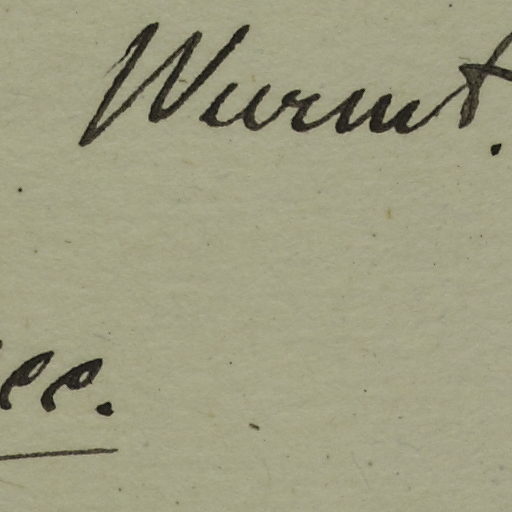 Wurmt.
ee.